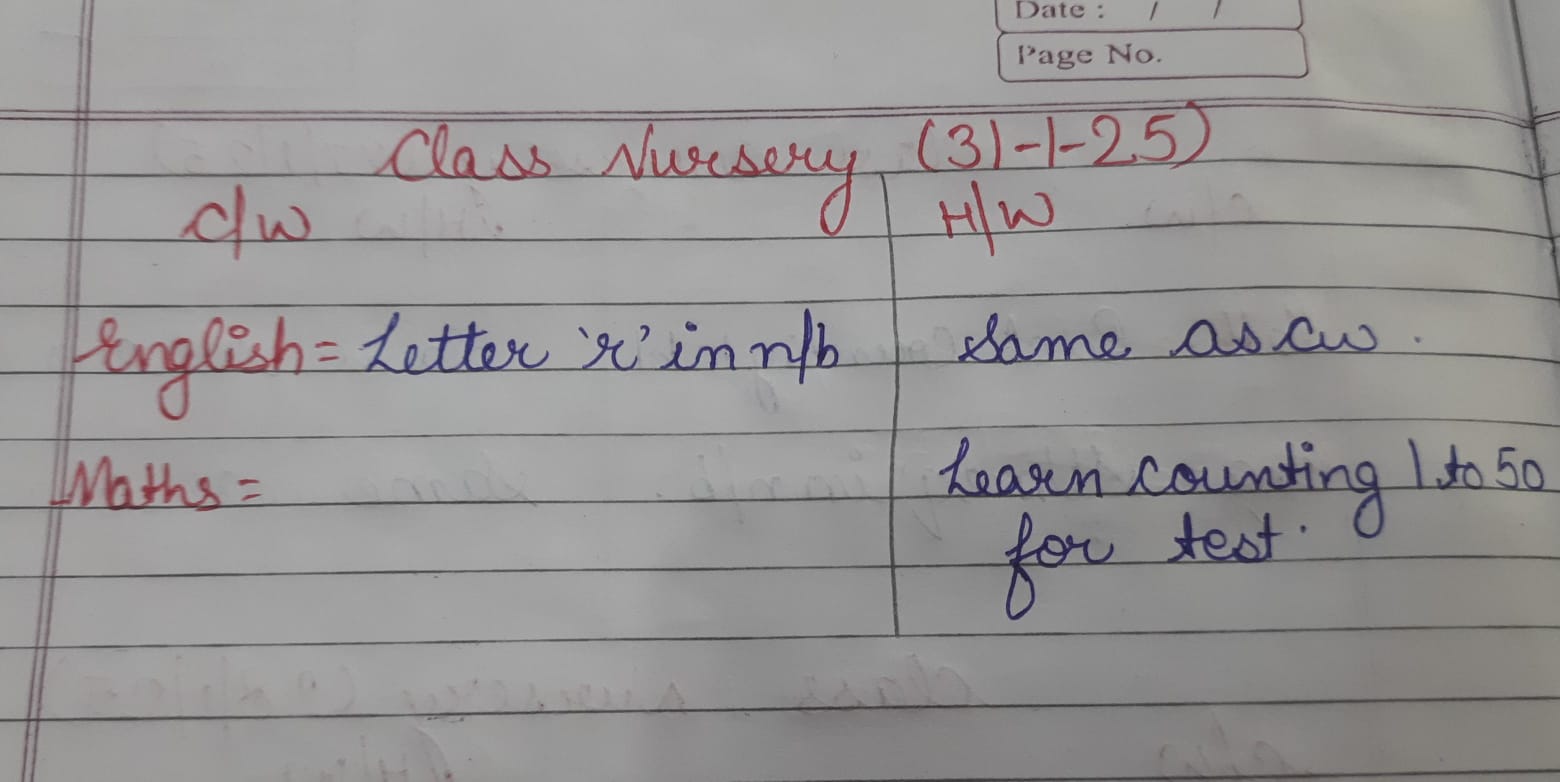 Date : / /
Page No.
Class Nursery (31-1-25)
C/W H/W
English = Letter 'r' in n/b Same as cw.
Maths = Learn counting 1 to 50
for test.